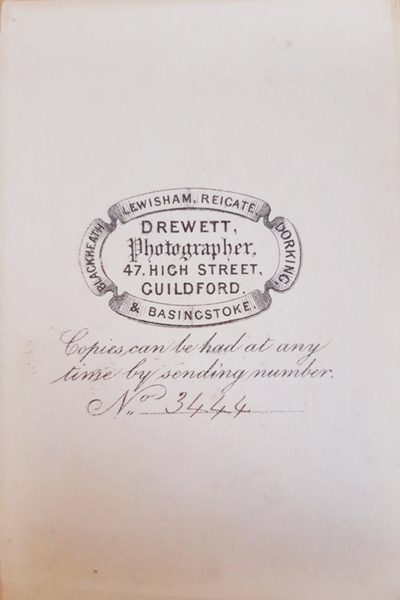 LEWISHAM, REIGATE
BLACKHEATH
DORKING,
DREWETT,
Photographer,
47. HIGH STREET,
GUILDFORD.
& BASINGSTOKE.
Copies can be had at any
time by sending number.
No. 3444